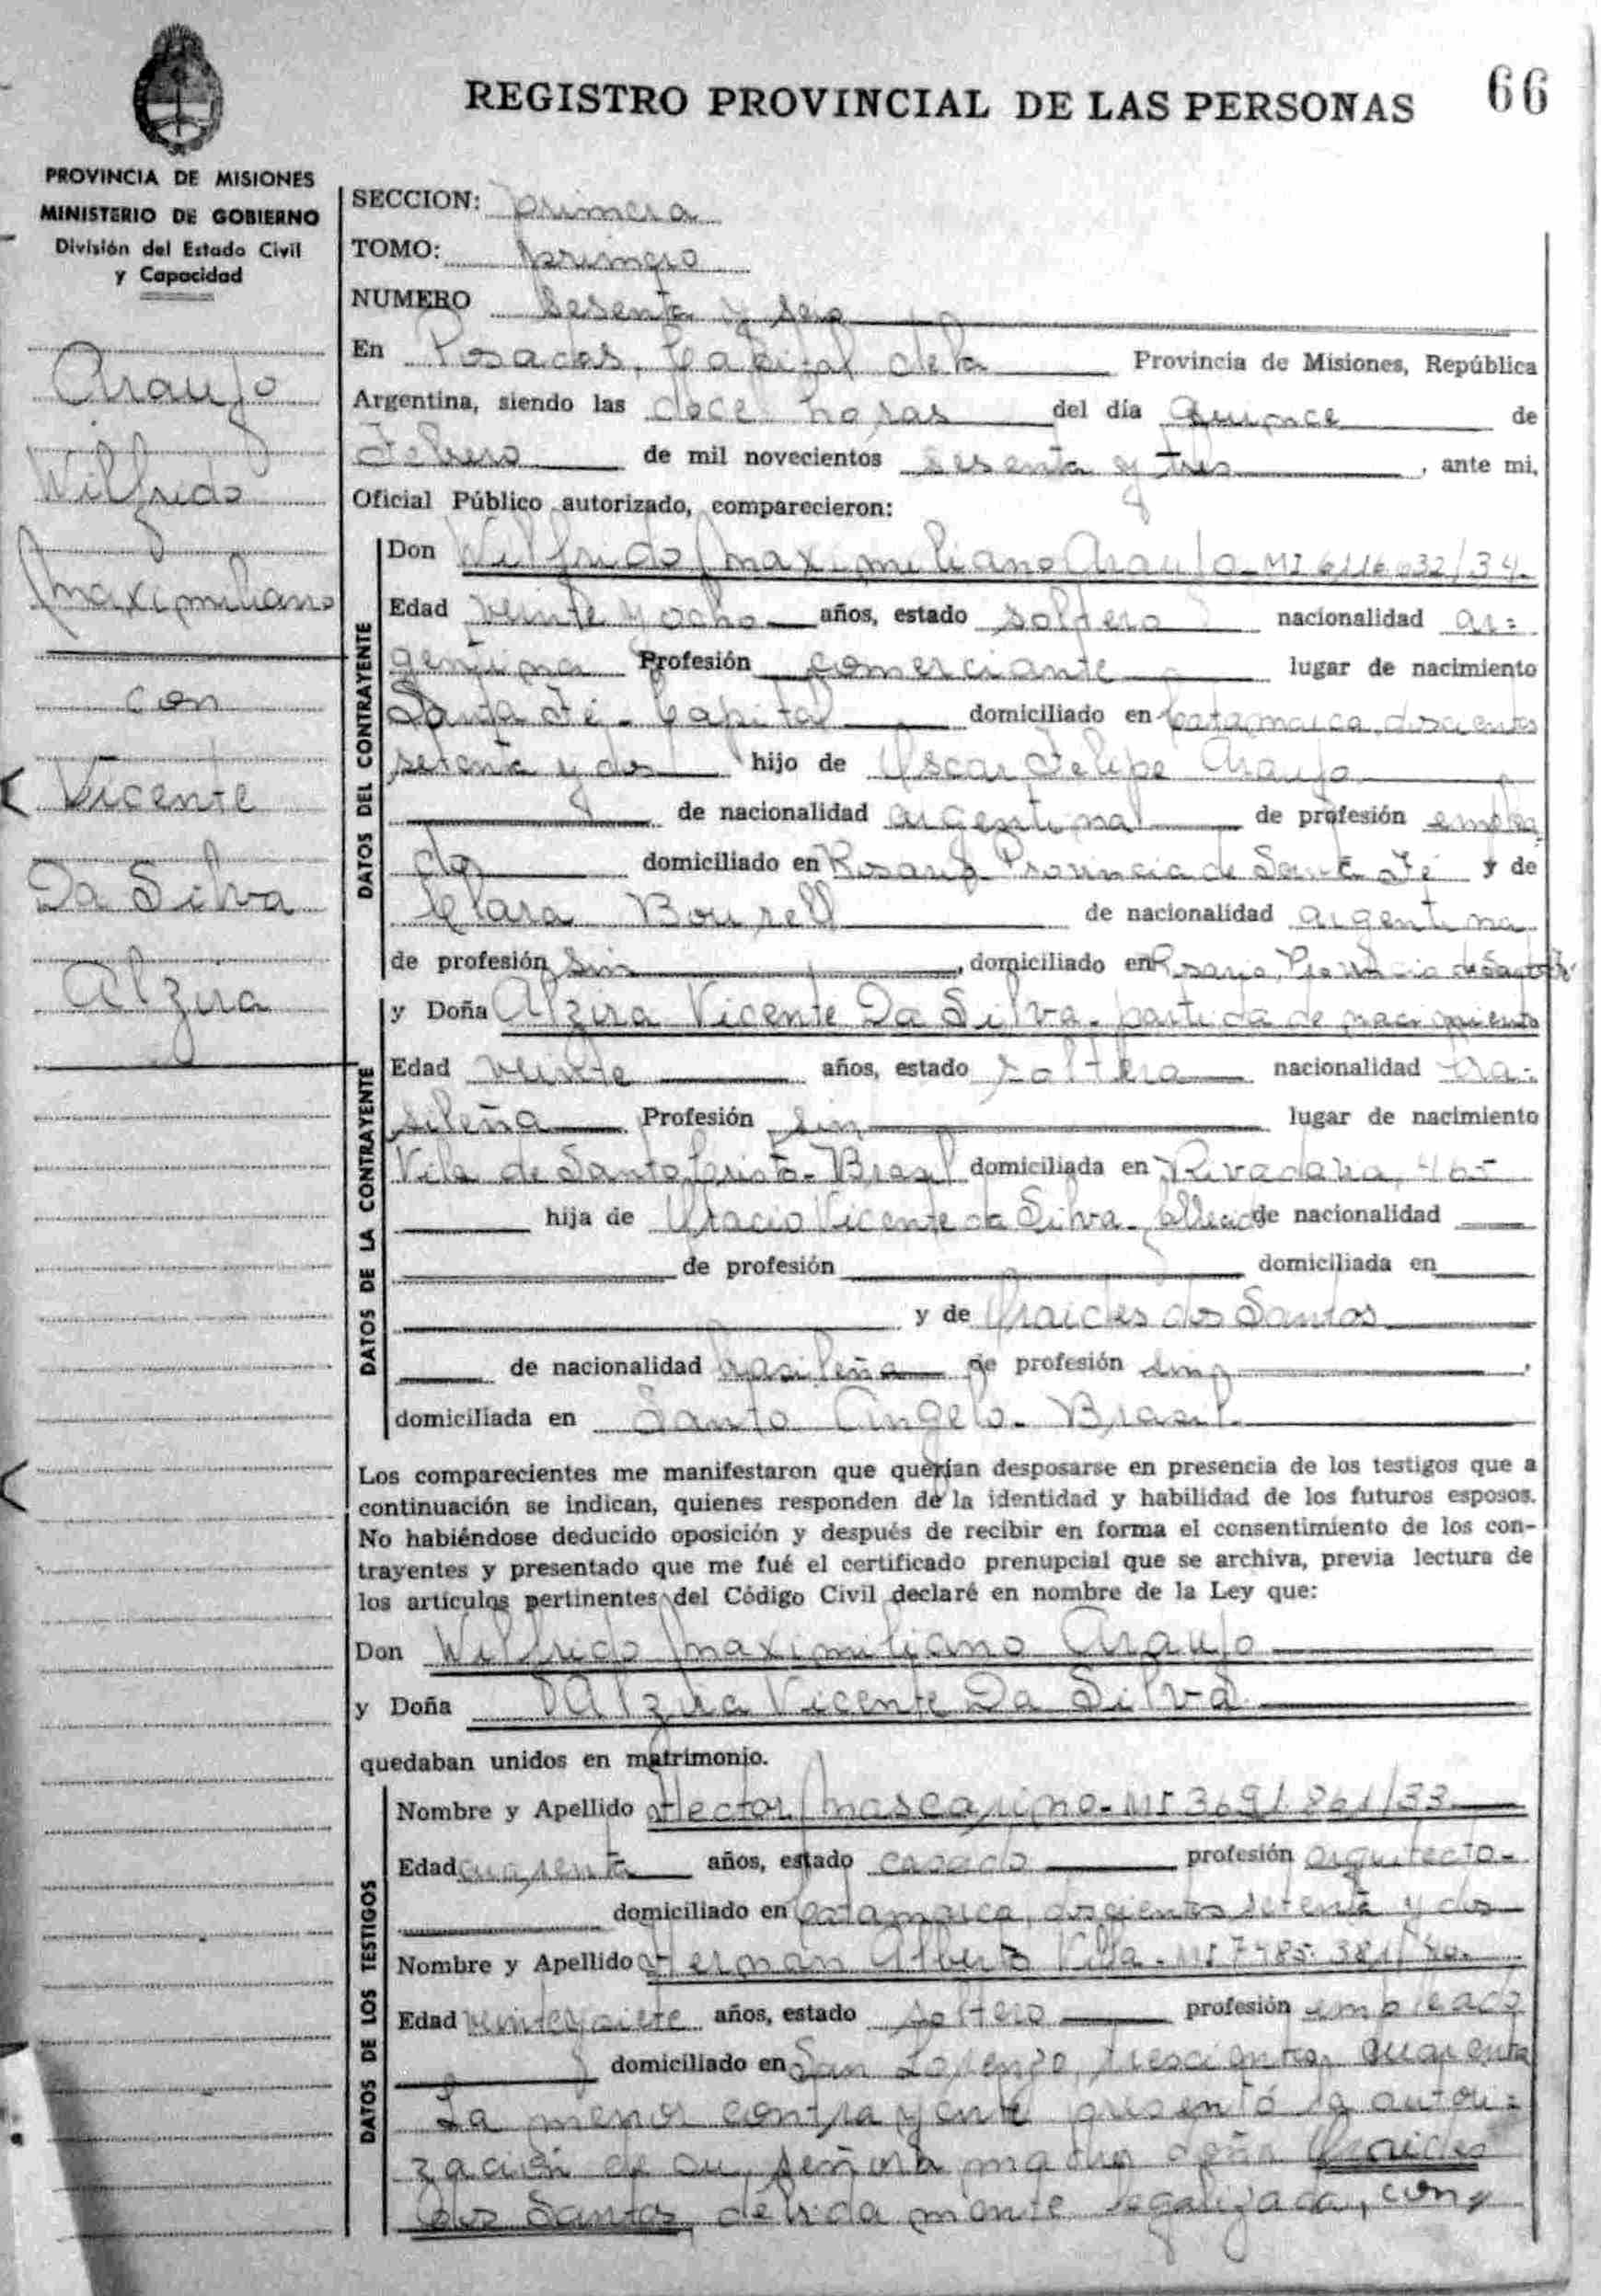 REGISTRO PROVINCIAL DE LAS PERSONAS
66
PROVINCIA DE MISIONES
MINISTERIO DE GOBIERNO
División del Estado Civil
y Capacidad
Araujo
Wilfredo
Maximiliano
con
Vicente
Da Silva
Alzira
SECCION: primera
TOMO: primero
NUMERO sesenta y seis
En Posadas, Capital de la Provincia de Misiones, República
Argentina, siendo las doce horas del día quince de
Febrero de mil novecientos sesenta y tres, ante mi,
Oficial Público autorizado, comparecieron:
DATOS DEL CONTRAYENTE
Don Wilfrido Maximiliano Araujo - MI 6116032/34-
Edad veinte y ocho años, estado soltero nacionalidad ar-
gentina Profesión comerciante lugar de nacimiento
Santa Fé - Capital domiciliado en Catamarca, doscientos
setenta y dos hijo de Oscar Felipe Araujo
de nacionalidad argentina de profesión emplea
do domiciliado en Rosario Provincia de Santa Fé y de
Clara de nacionalidad argentina
de profesión sin, domiciliado en Rosario, Provincia de Santa Fé
DATOS DE LA CONTRAYENTE
y Doña Alzira Vicente Da Silva - partida de nacimiento
Edad veinte años, estado soltera nacionalidad bra-
sileña Profesión sin lugar de nacimiento
Vila de Santo Cristo - Brasil domiciliada en Rivadavia, 465
hija de Vicente da Silva - fallecido de nacionalidad
de profesión domiciliada en
y de dos Santos
de nacionalidad brasileña de profesión sin,
domiciliada en Santo Angelo - Brasil
Los comparecientes me manifestaron que querían desposarse en presencia de los testigos que a
continuación se indican, quienes responden de la identidad y habilidad de los futuros esposos.
No habiéndose deducido oposición y después de recibir en forma el consentimiento de los con-
trayentes y presentado que me fué el certificado prenupcial que se archiva, previa lectura de
los artículos pertinentes del Código Civil declaré en nombre de la Ley que:
Don Wilfrido Maximiliano Araujo
y Doña Alzira Vicente Da Silva
quedaban unidos en matrimonio.
DATOS DE LOS TESTIGOS
Nombre y Apellido Hector Mascarino - MI 3691861/33
Edad cuarenta años, estado casado profesión arquitecto-
domiciliado en Catamarca, doscientos setenta y dos
Nombre y Apellido Hernan Alberto Villa - MI 7485.381/40-
Edad veinte y siete años, estado soltero profesión empleado
domiciliado en San Lorenzo, trescientos cuarenta
La menor contrayente presentó la autori-
zación de su señora madre doña
dos Santos debidamente legalizada, con